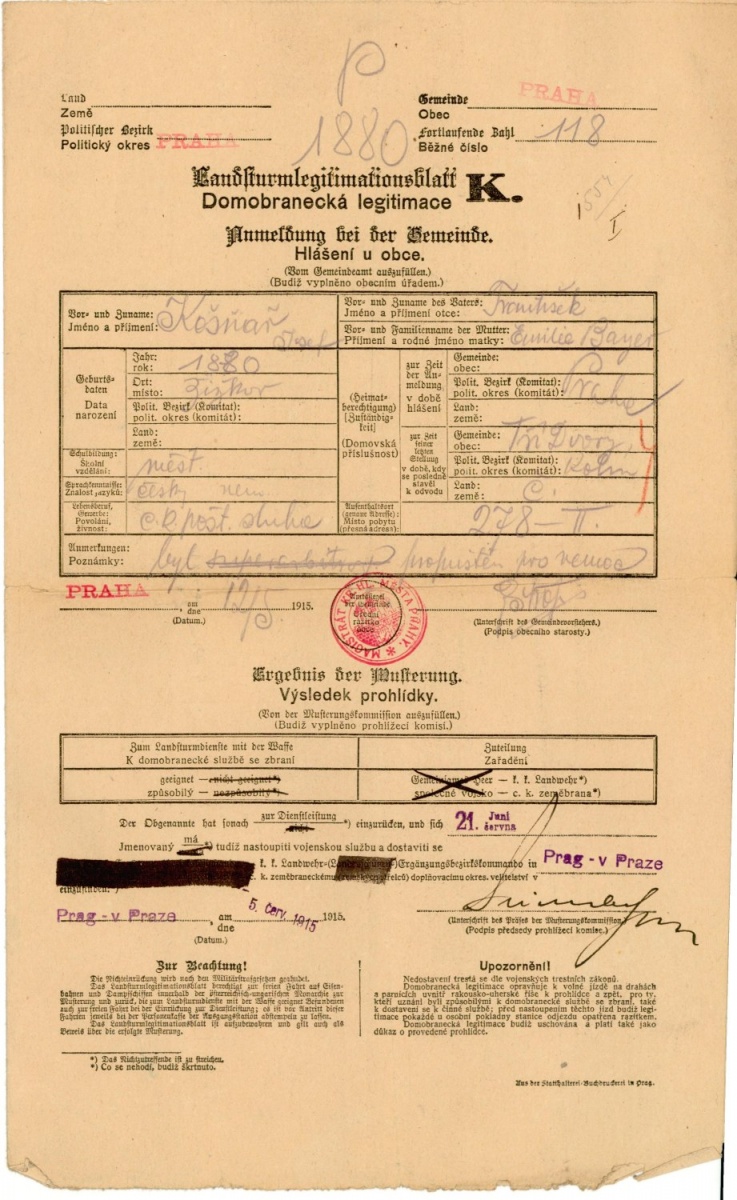 P
1880
Land
Země
Politischer Bezirk
Politický okres PRAHA
Gemeinde PRAHA
Obec
Fortlaufende Zahl 118
Běžné číslo
Landsturmlegitimationsblatt K.
Domobranecká legitimace
Anmeldung bei der Gemeinde.
Hlášení u obce.
(Vom Gemeindeamt auszufüllen.)
(Budiž vyplněno obecním úřadem.)
Vor- und Zuname:
Jméno a příjmení: Košnař Josef
Vor- und Zuname des Vaters:
Jméno a příjmení otce: František
Vor- und Familienname der Mutter:
Příjmení a rodné jméno matky: Emilie Bayer
Geburtsdaten
Data narození
Jahr:
rok: 1880
Ort:
místo: Žižkov
Polit. Bezirk (Komitat):
polit. okres (komitát):
Land:
země:
(Heimatberechtigung) [Zuständigkeit]
(Domovská příslušnost)
zur Zeit der Anmeldung
v době hlášení
Gemeinde:
obec:
Polit. Bezirk (Komitat):
polit. okres (komitát): Praha
Land:
země:
zur Zeit seiner letzten Stellung
v době, kdy se posledně stavěl k odvodu
Gemeinde:
obec: Tři Dvory
Polit. Bezirk (Komitat):
polit. okres (komitát): Kolín
Land:
země: Č.
Schulbildung:
Školní vzdělání: měšť.
Sprachkenntnisse:
Znalost jazyků: česky něm
Lebensberuf, Gewerbe:
Povolání, živnost: c. k. pošt. sluha
Aufenthaltsort (genaue Adresse):
Místo pobytu (přesná adresa): 278–II.
Anmerkungen:
Poznámky: byl superarbitrov propuštěn pro nemoc
PRAHA am dne 12/5 1915.
(Datum.)
Amtssiegel der Gemeinde.
Úřední razítko obce
MAGISTRÁT KR. HL. MĚSTA PRAHY.
(Unterschrift des Gemeindevorstehers.)
(Podpis obecního starosty.)
Ergebnis der Musterung.
Výsledek prohlídky.
(Von der Musterungskommission auszufüllen.)
(Budiž vyplněno prohlížecí komisí.)
Zum Landsturmdienste mit der Waffe
K domobranecké službě se zbraní
Zuteilung
Zařadění
geeignet — nicht geeignet*)
způsobilý — nezpůsobilý*)
Gemeinsames Heer — k. k. Landwehr*)
společné vojsko — c. k. zeměbrana*)
Der Obgenannte hat sonach zur Dienstleistung nicht *) einzurücken, und sich 21. Juni června
Jmenovaný má *) tudíž nastoupiti vojenskou službu a dostaviti se
k. k. Landwehr- Ergänzungsbezirkskommando in Prag - v Praze
c. k. zeměbraneckému doplňovacímu okres. velitelství v
einzufinden.
Prag - v Praze am dne 5. červ. 1915 1915.
(Datum.)
(Unterschrift des Präses der Musterungskommission.)
(Podpis předsedy prohlížecí komise.)
Zur Beachtung!
Die Nichteinrückung wird nach den Militärstrafgesetzen geahndet.
Das Landsturmlegitimationsblatt berechtigt zur freien Fahrt auf Eisen-
bahnen und Dampfschiffen innerhalb der österreichisch-ungarischen Monarchie zur
Musterung und zurück, die zum Landsturmdienste mit der Waffe geeignet Befundenen
auch zur freien Fahrt bei der Einrückung zur Dienstleistung; es ist vor Antritt dieser
Fahrten jeweils bei der Personenkasse der Ausgangsstation abstempeln zu lassen.
Das Landsturmlegitimationsblatt ist aufzubewahren und gilt auch als
Beweis über die erfolgte Musterung.
Upozornění!
Nedostavení trestá se dle vojenských trestních zákonů.
Domobranecká legitimace opravňuje k volné jízdě na drahách
a parnících uvnitř rakousko-uherské říše k prohlídce a zpět, pro ty,
kteří uznáni byli způsobilými k domobranecké službě se zbraní, také
k dostavení se k činné službě; před nastoupením těchto jízd budiž legi-
timace pokaždé u osobní pokladny stanice odjezdu opatřena razítkem.
Domobranecká legitimace budiž uschována a platí také jako
důkaz o provedené prohlídce.
*) Das Nichtzutreffende ist zu streichen.
*) Co se nehodí, budiž škrtnuto.
Aus der Statthalterei-Buchdruckerei in Prag.